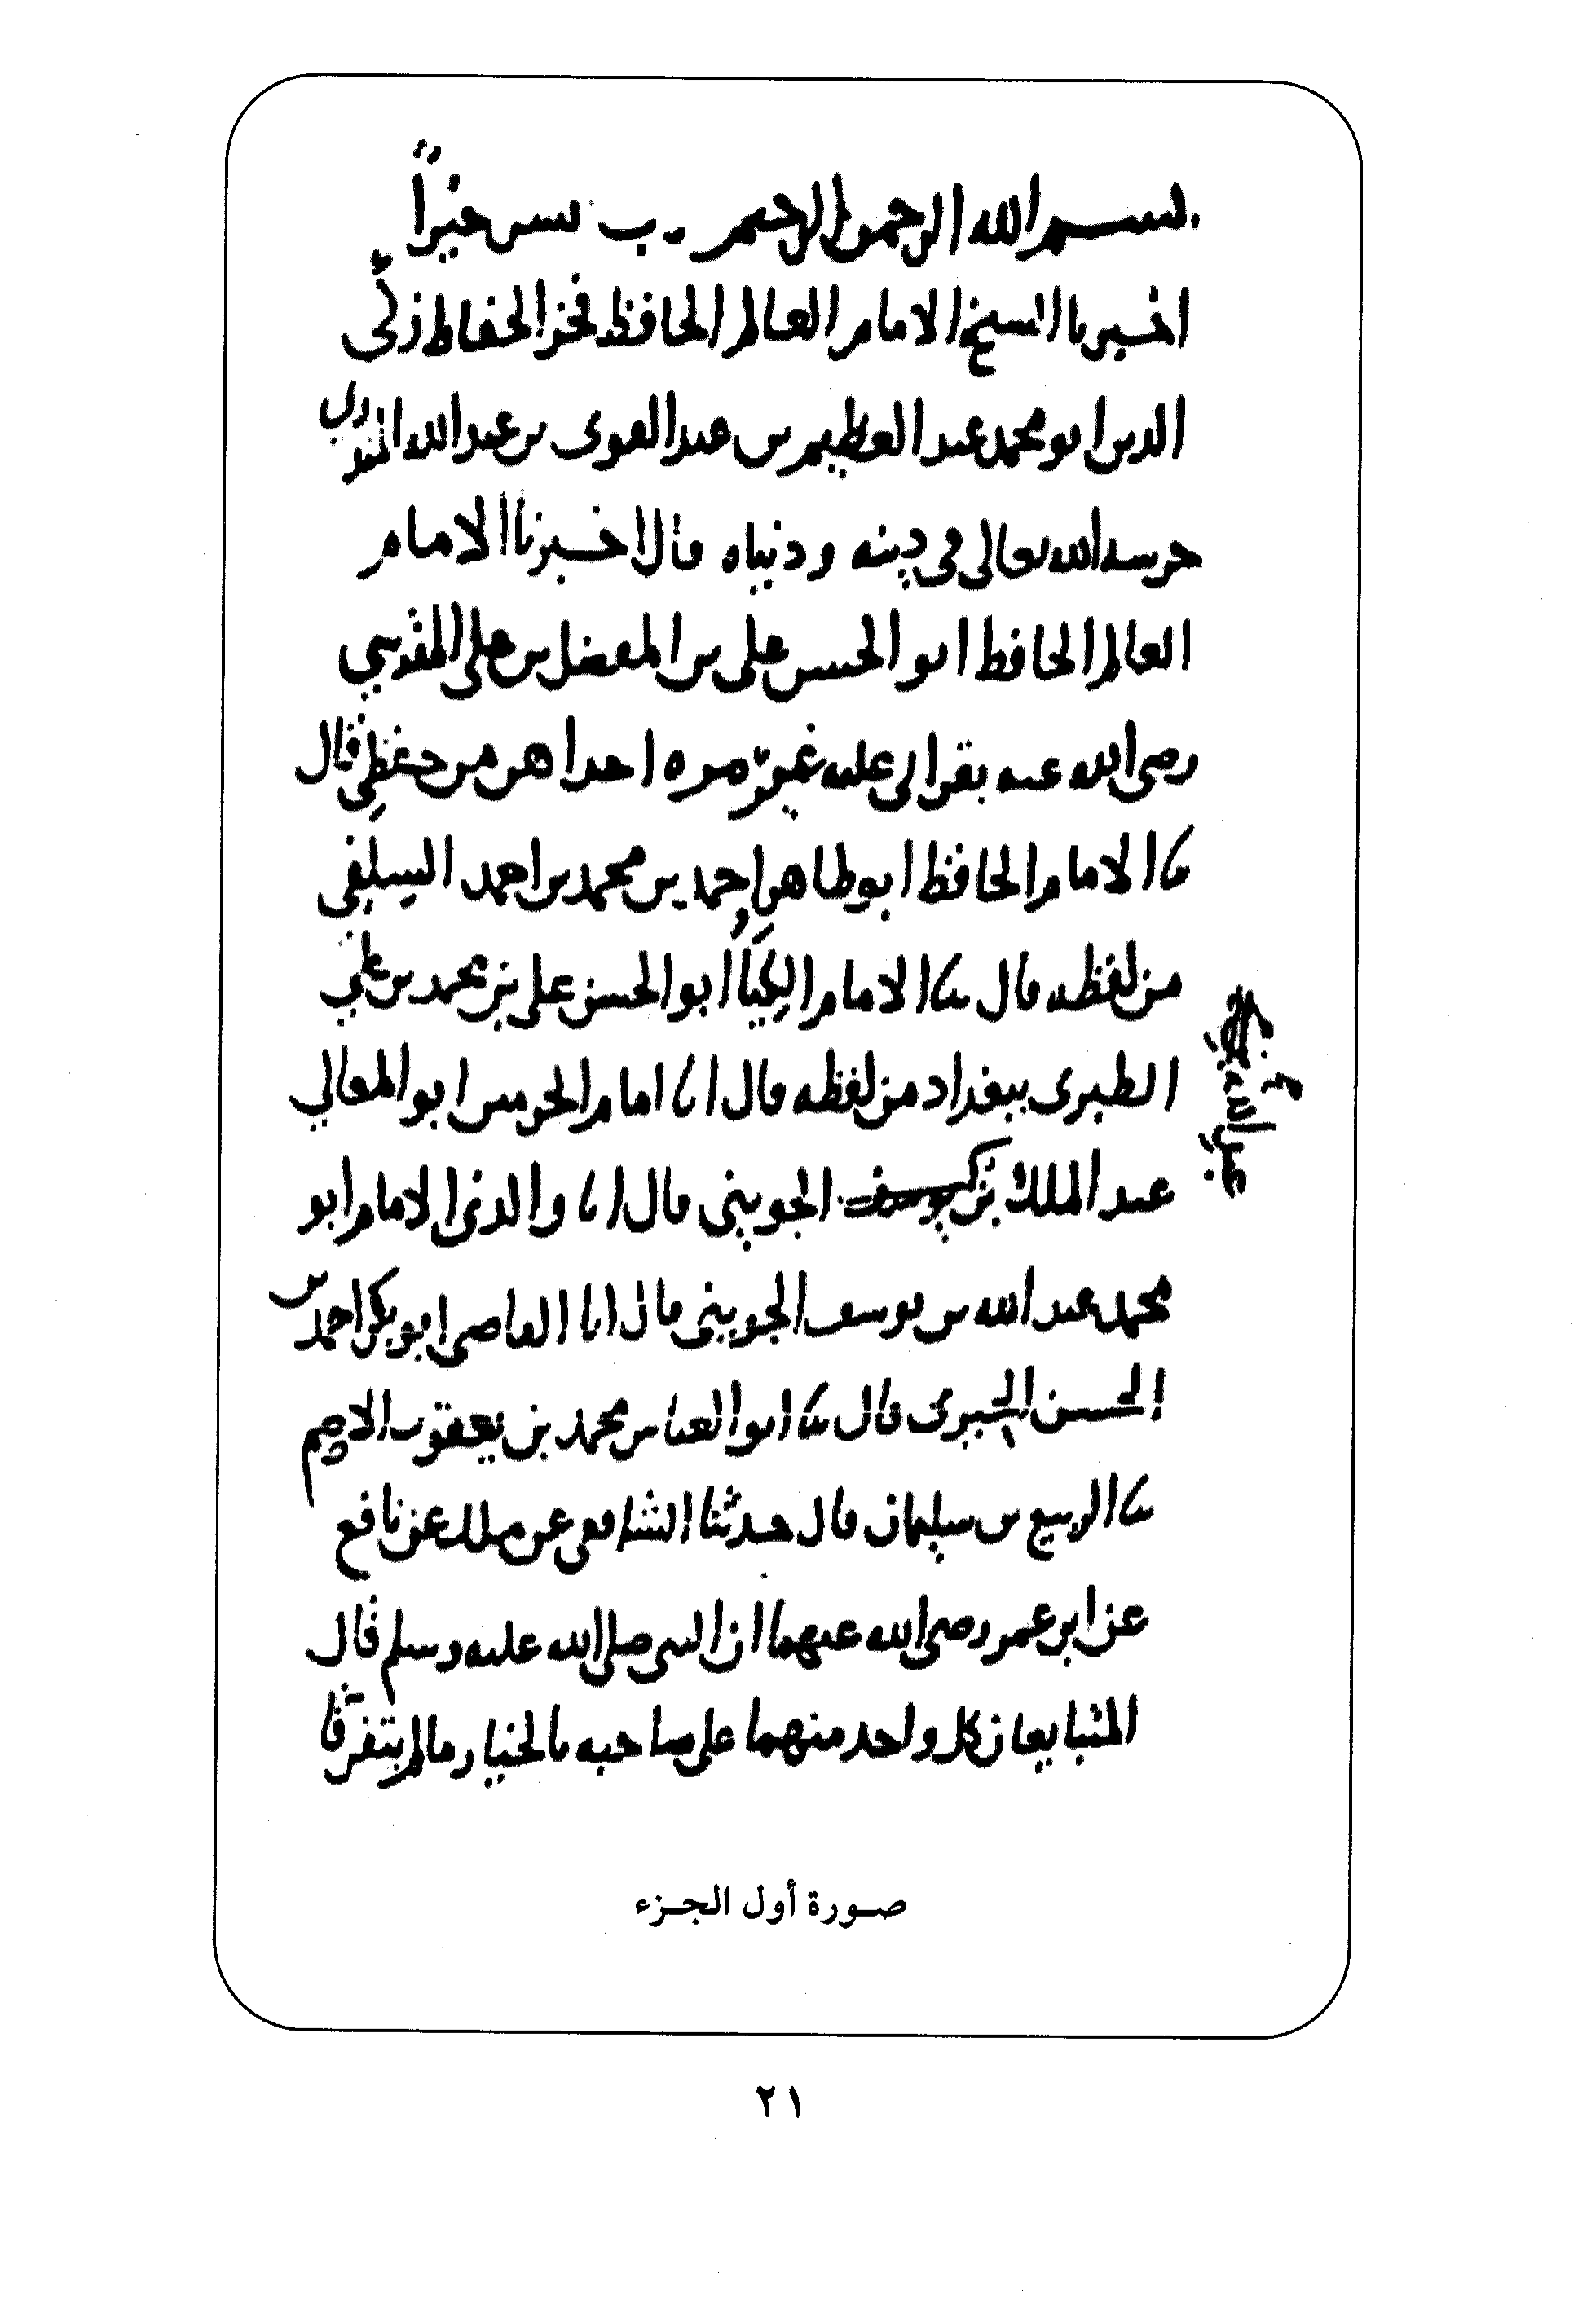 بسم الله الرحمن الرحيم رب يسر خيراً
اخبرنا الشيخ الامام العالم الحافظ فخر الحفاظ زكي
الدين ابو محمد عبد العظيم بن عبد القوى بن عبد الله المنذري
حرسه الله تعالى في دينه ودنياه قال اخبرنا الامام
العالم الحافظ ابو الحسن على بن المفضل بن على المقدسي
رضي الله عنه بقراتى عليه غير مره احداهن من حفظي قال
ثنا الامام الحافظ ابو طاهر احمد بن محمد بن احمد السلفي
من لفظه قال ثنا الامام الكيا ابو الحسن على بن محمد بن علي
الطبرى ببغداد من لفظه قال انا امام الحرمين ابو المعالي
عبد الملك بن يوسف الجويني قال انا والدى الامام ابو
عبد الله بن
محمد عبد الله بن يوسف الجويني قال انا القاضي ابو بكر احمد بن
الحسن الحيرى قال ثنا ابو العباس محمد بن يعقوب الاصم
ثنا الربيع بن سليمان قال حدثنا الشافعي عن ملك عن نافع
عن ابن عمر رضي الله عنهما ان النبي صلى الله عليه وسلم قال
المتبايعان كل واحد منهما على صاحبه بالخيار مالم يتفرقا
صورة أول الجزء
٢١